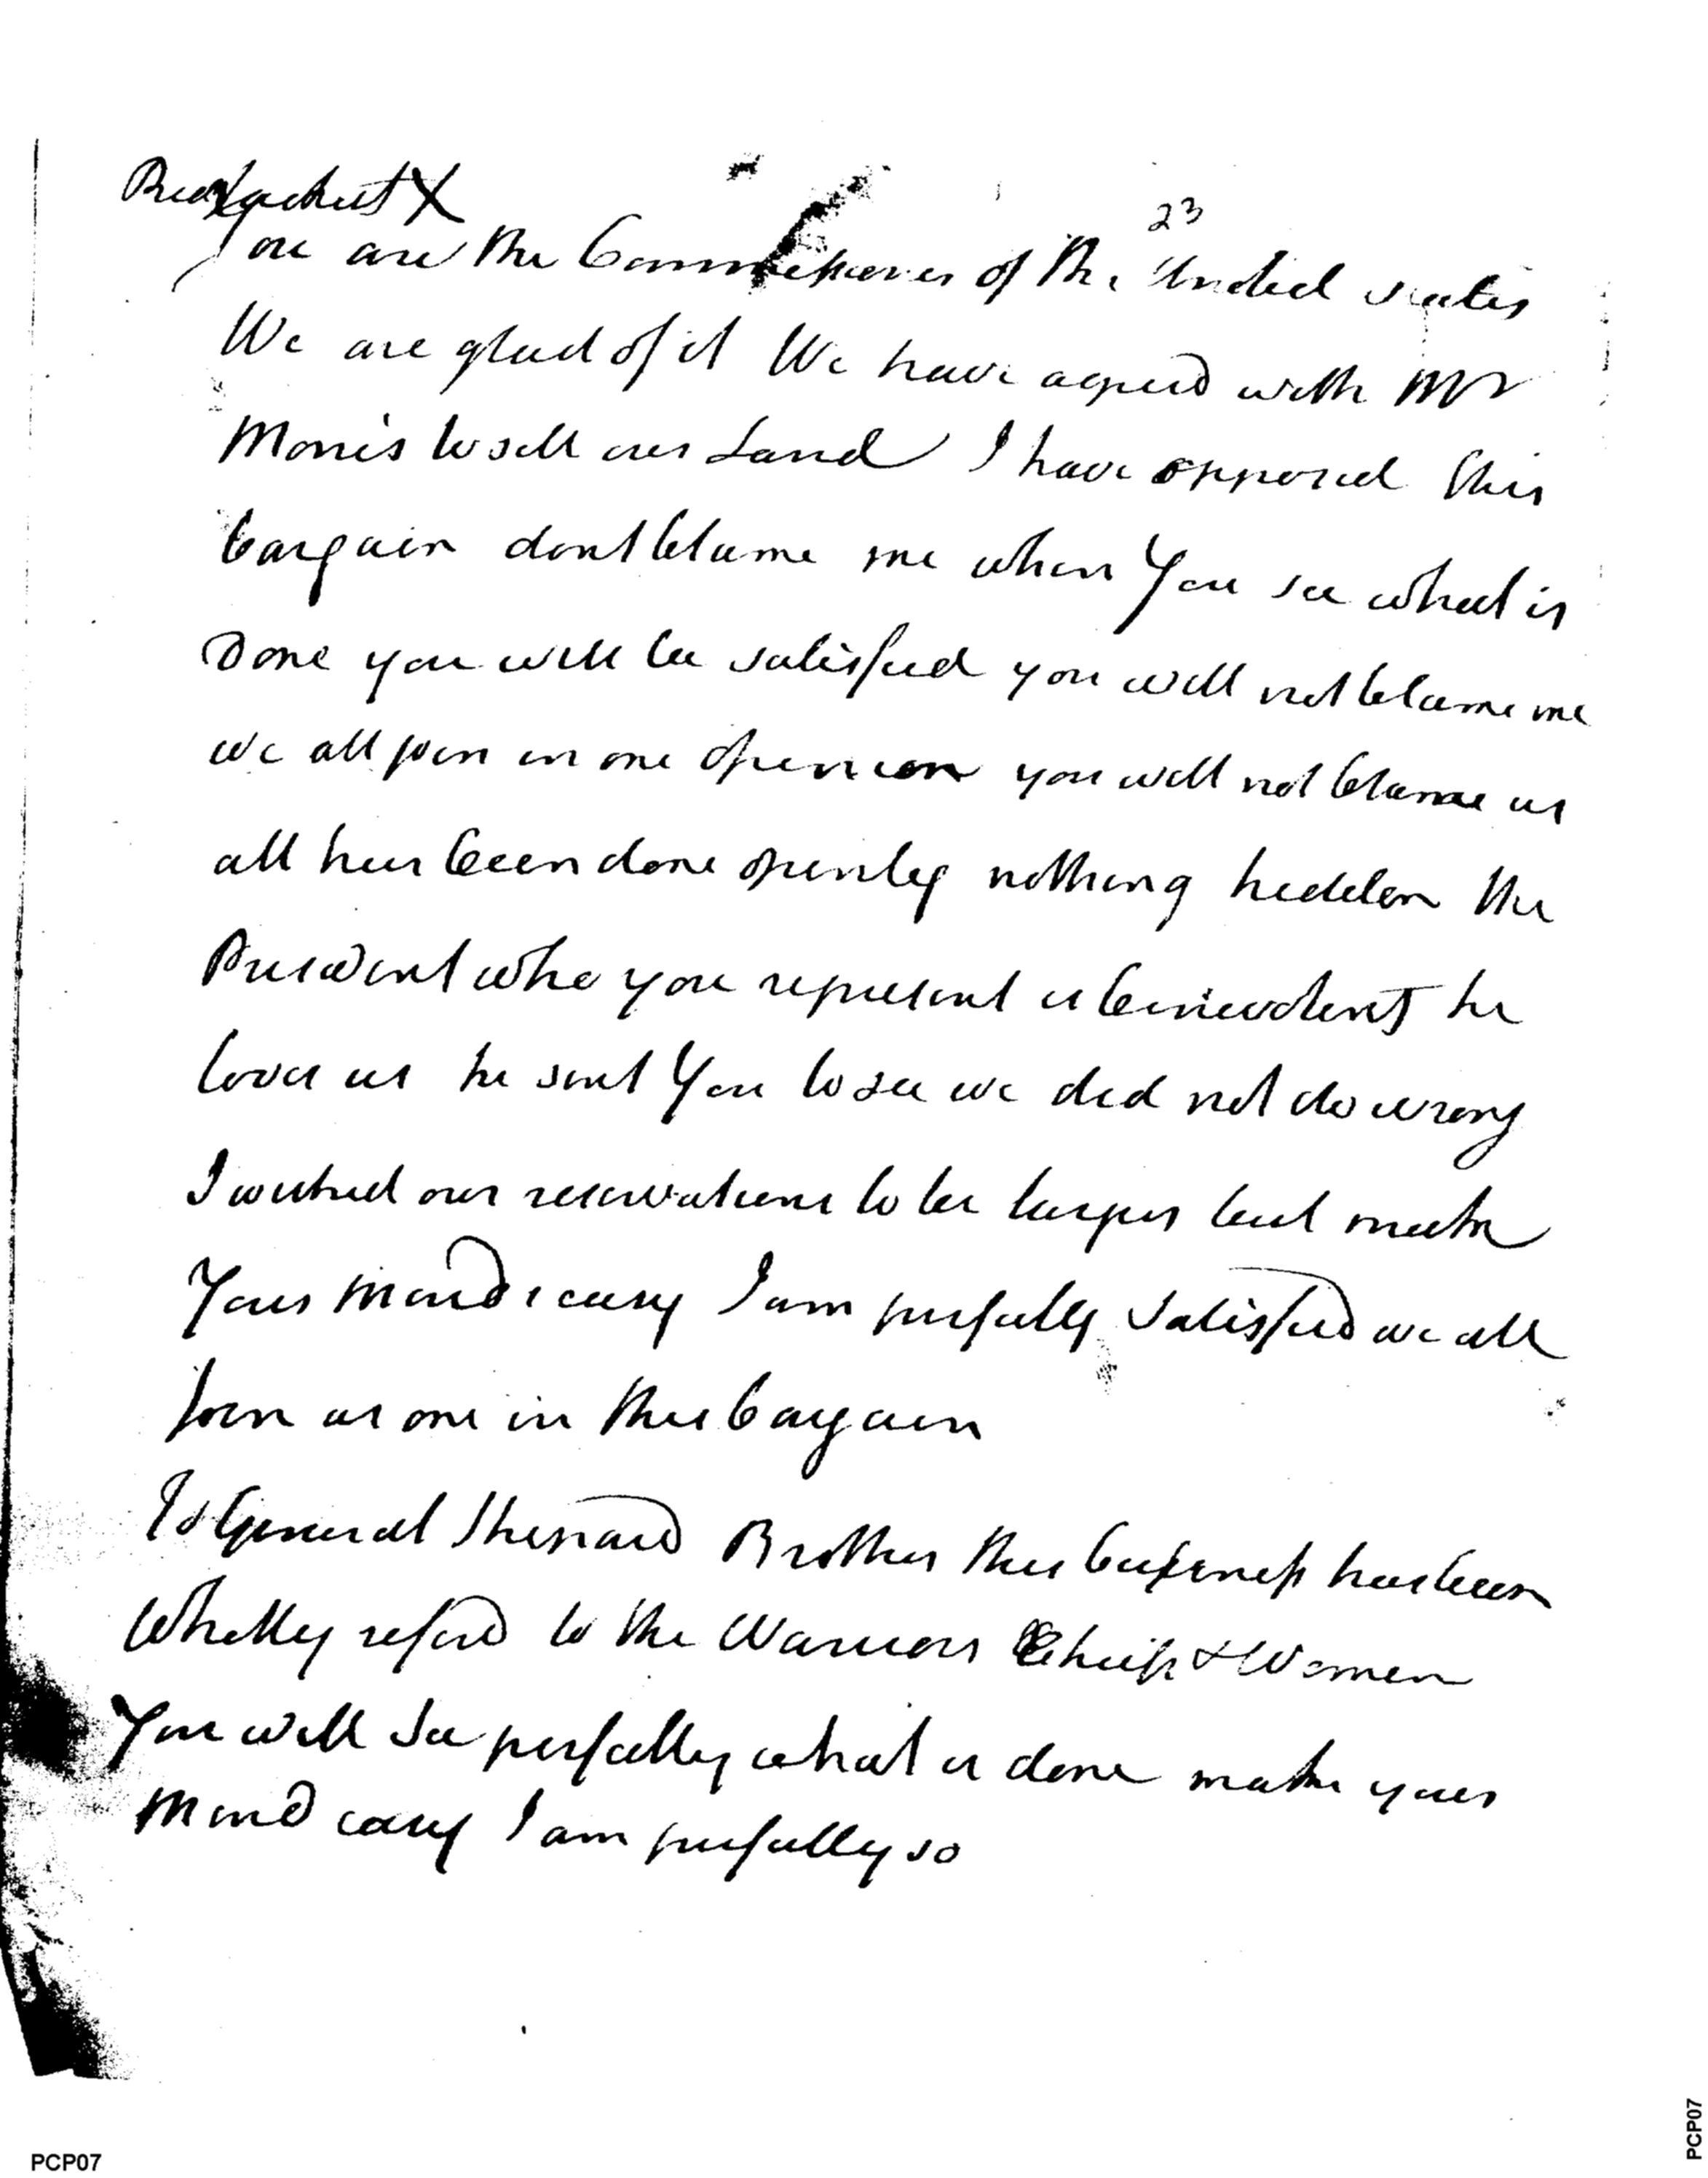 Red Jacket X
23
You are the Commissioner of the United states
We are glad of it We have agreed with Mr
Morris to sell our Land I have opposed this
bargain dont blame me when You see what is
Done you will be satisfied you will not blame me
we all join in one opinion you will not blame us
all has been done openly nothing hidden the
President who you represent is benevolent he
loves us he sent You to see we did not do wrong
I wished our reservations to be larger but make
Your mind easy I am perfectly satisfied we all
join as one in this bargain
To General Shepard Brother this business has been
Wholly referd to the Warriors Chiefs & Women
You will see perfectly what is done make your
Mind easy I am perfectly so
PCP07
PCP07